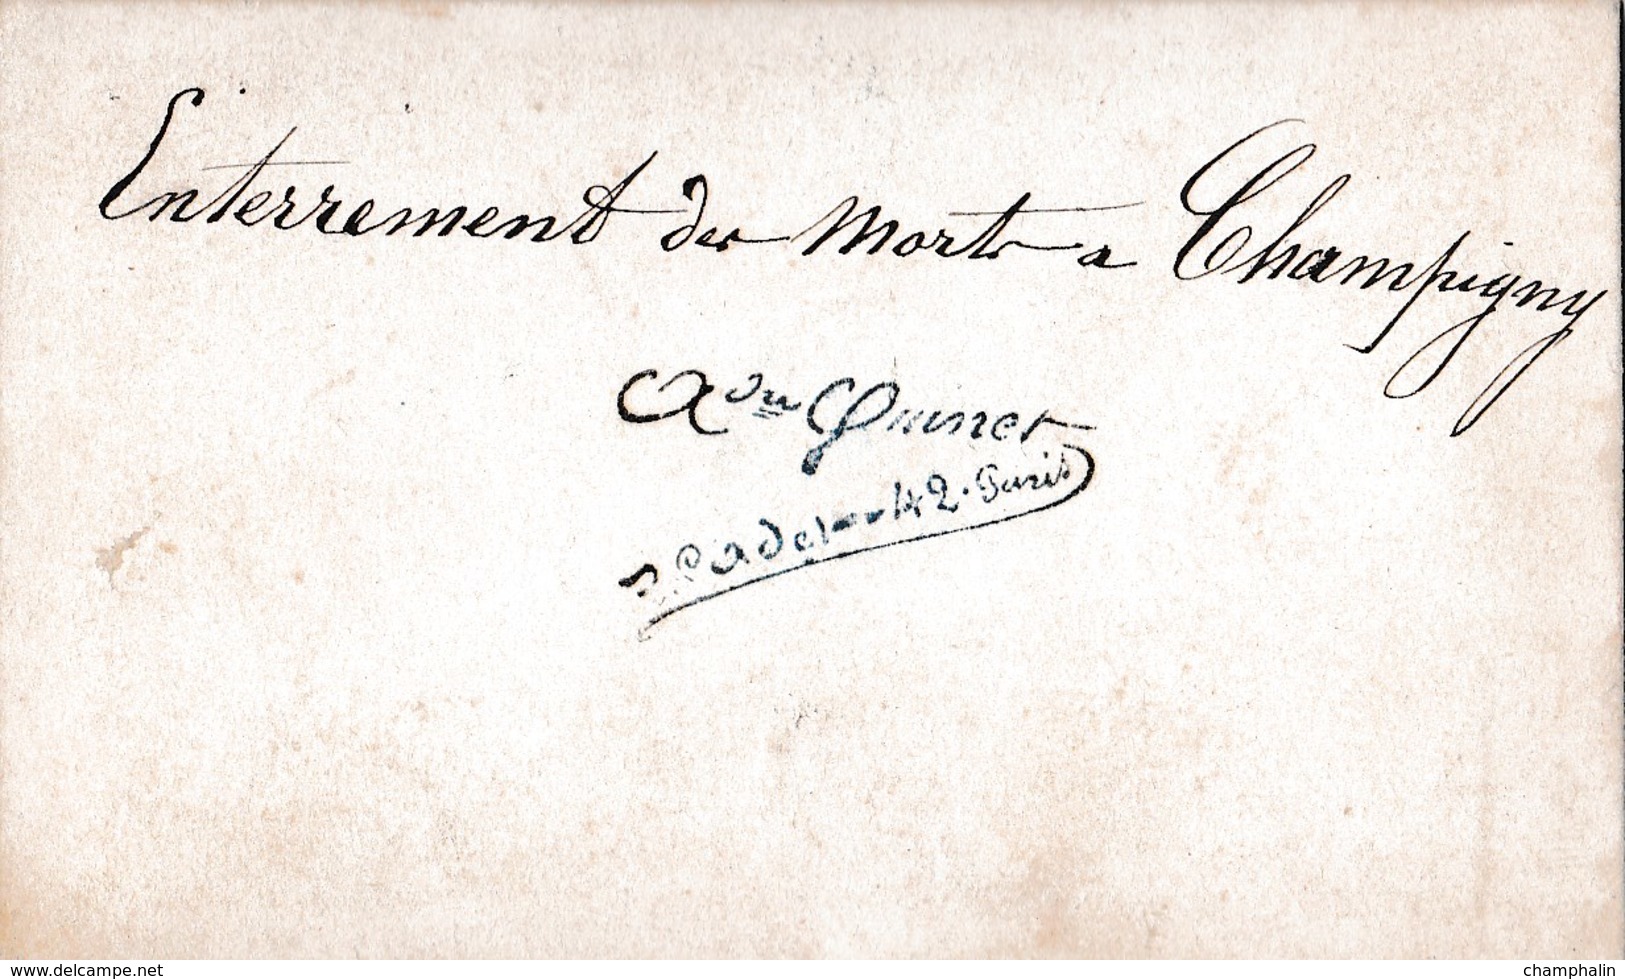 Enterrement des Morts a Champigny
Adre Quinet
r. Cadet 42. Paris
www.delcampe.net
champhalin